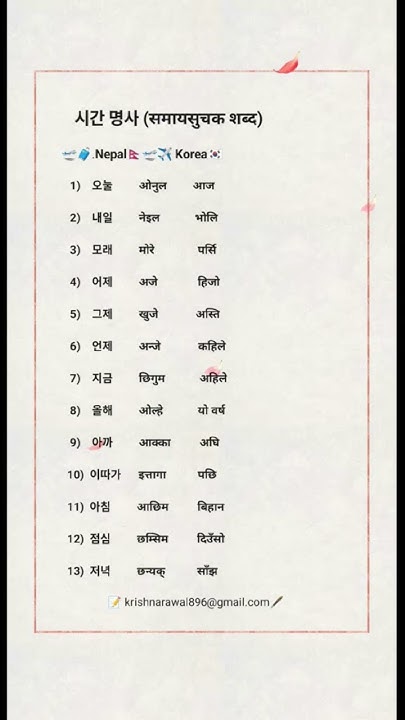 시간 명사 (समायसुचक शब्द)
🛫🧳.Nepal🇳🇵🛫✈️ Korea🇰🇷
1) 오눌 ओनुल आज
2) 내일 नेइल भोलि
3) 모래 मोरे पर्सि
4) 어제 अजे हिजो
5) 그제 खुजे अस्ति
6) 언제 अन्जे कहिले
7) 지금 छिगुम अहिले
8) 올해 ओल्हे यो वर्ष
9) 아까 आक्का अघि
10) 이따가 इत्तागा पछि
11) 아침 आछिम बिहान
12) 점심 छम्सिम दिउँसो
13) 저녁 छन्यक् साँझ
📝 krishnarawal896@gmail.com🖋️